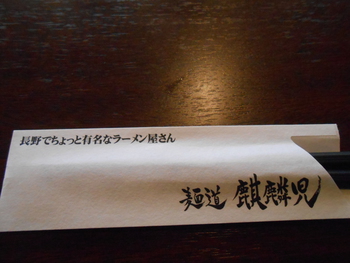 長野でちょっと有名なラーメン屋さん
麺道 麒麟児